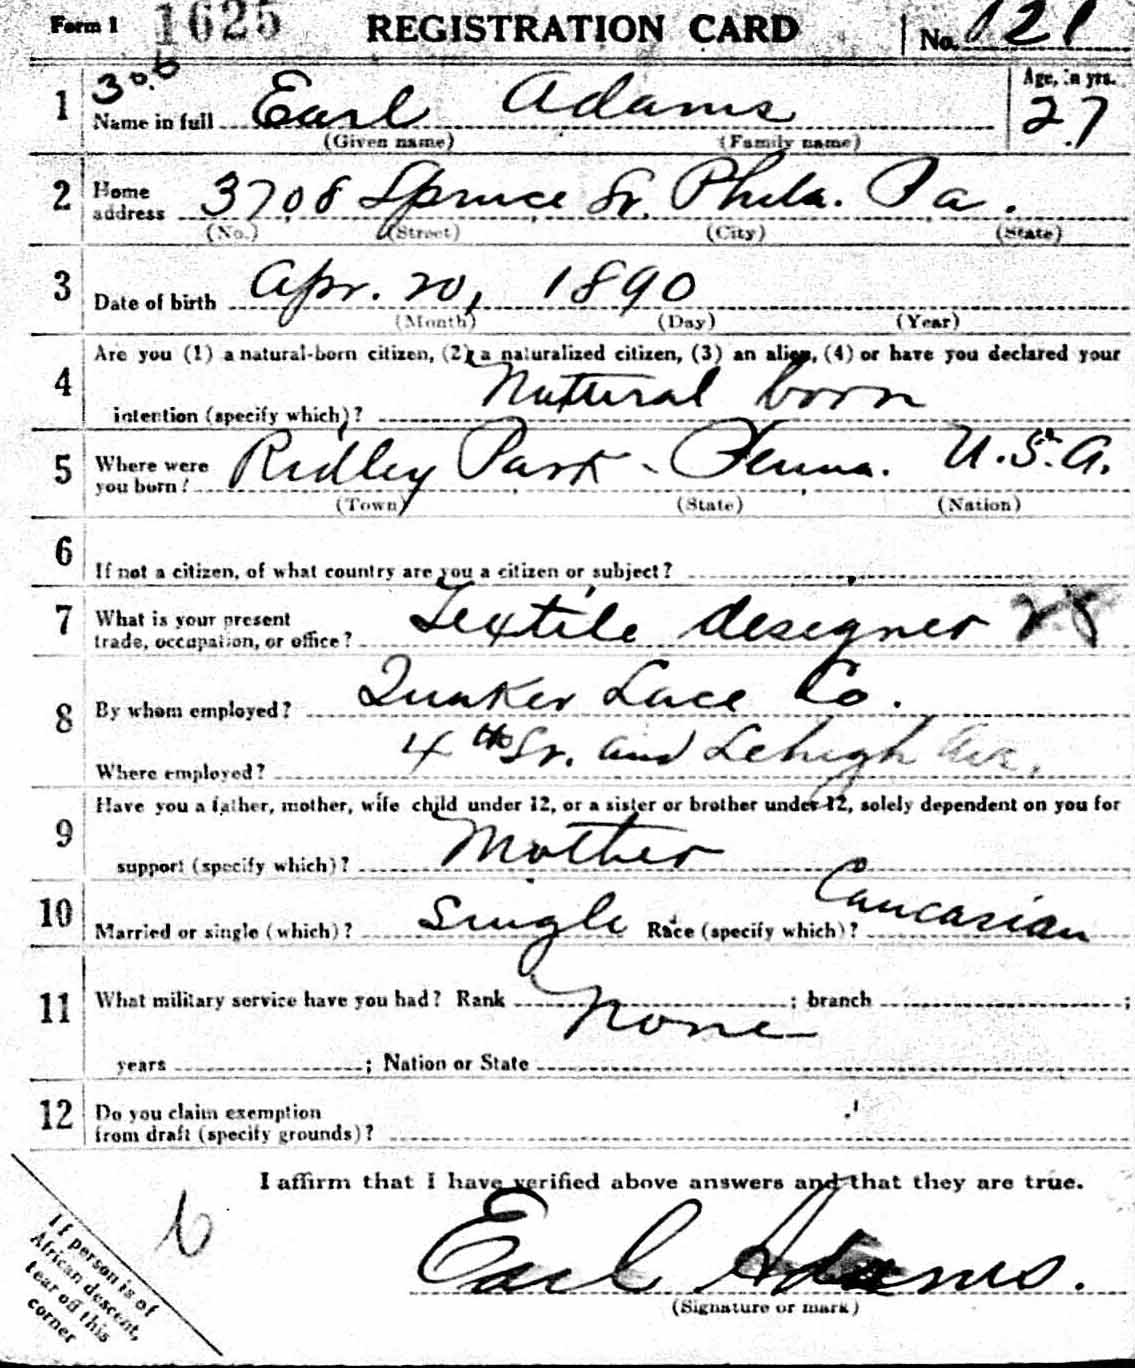 Form 1 1625 REGISTRATION CARD No. 121
306
1 Name in full Earl Adams Age, in yrs. 27
(Given name) (Family name)
2 Home address 3708 Spruce St. Phila. Pa.
(No.) (Street) (City) (State)
3 Date of birth Apr. 20, 1890
(Month) (Day) (Year)
4 Are you (1) a natural-born citizen, (2) a naturalized citizen, (3) an alien, (4) or have you declared your
intention (specify which)? Natural born
5 Where were you born? Ridley Park - Penna. U.S.A.
(Town) (State) (Nation)
6 If not a citizen, of what country are you a citizen or subject?
7 What is your present
trade, occupation, or office? Textile designer 28
8 By whom employed? Quaker Lace Co.
Where employed? 4th St. and Lehigh Ave.
9 Have you a father, mother, wife child under 12, or a sister or brother under 12, solely dependent on you for
support (specify which)? Mother
10 Married or single (which)? Single Race (specify which)? Caucasian
11 What military service have you had? Rank None ; branch ;
years ; Nation or State
12 Do you claim exemption
from draft (specify grounds)?
I affirm that I have verified above answers and that they are true.
6
Earl Adams.
(Signature or mark)
If person is of
African descent,
tear off this
corner